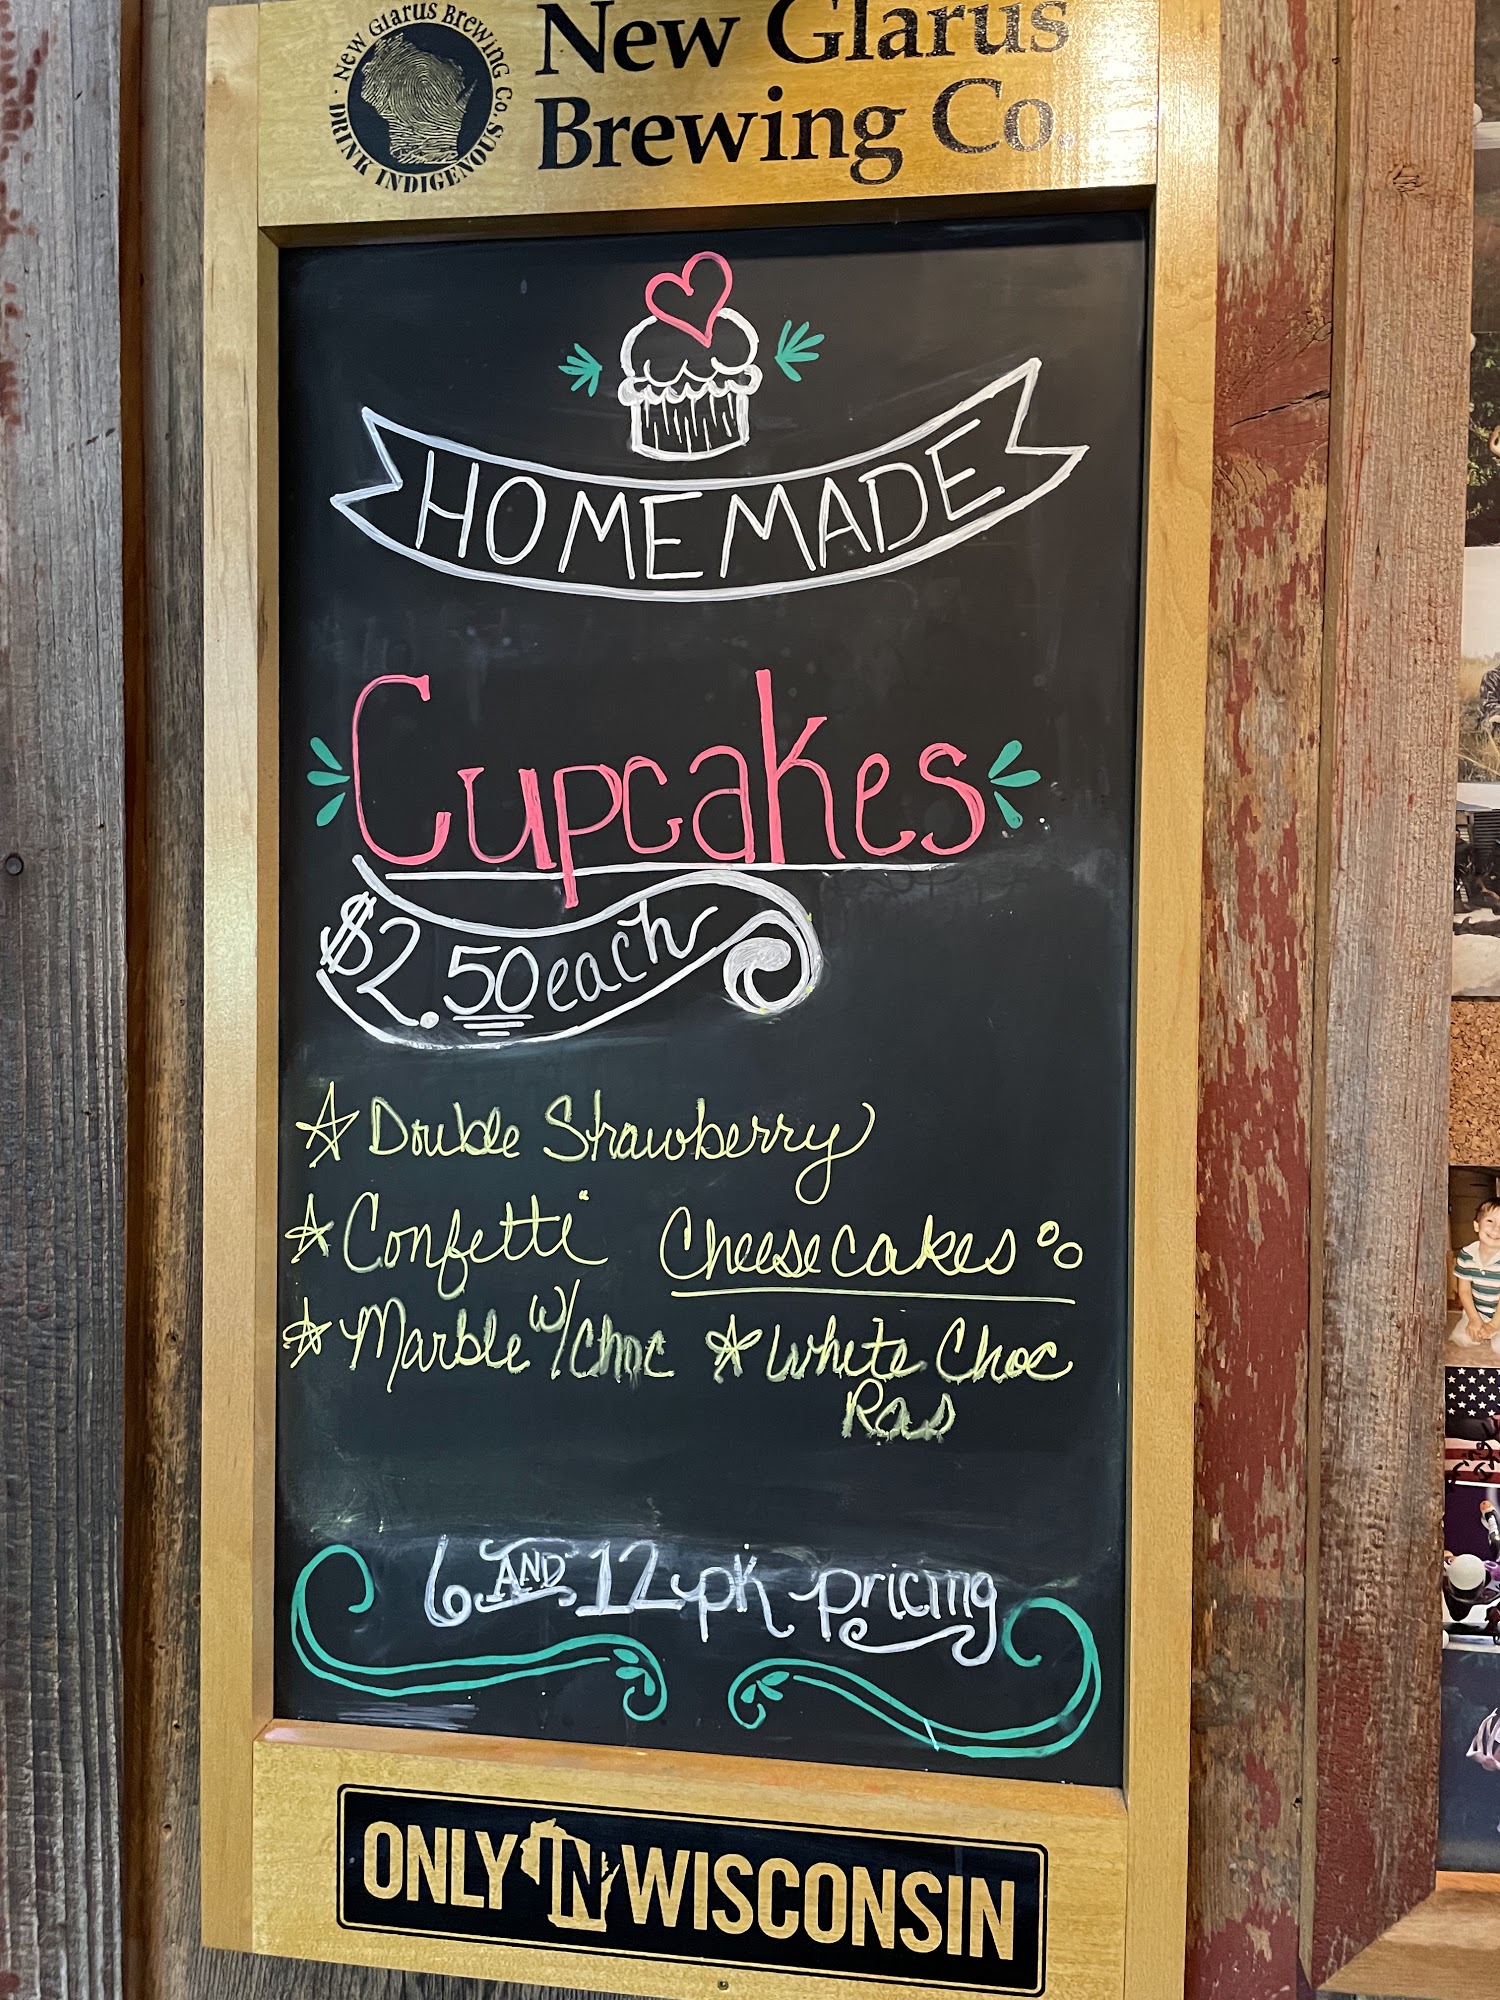 NEW GLARUS BREWING CO.
DRINK INDIGENOUS
New Glarus
Brewing Co.
HOMEMADE
Cupcakes
$2.50 each
Double Strawberry
Confetti
Cheesecakes
Marble w/choc
White Choc
Ras
6 AND 12 pk pricing
ONLY IN WISCONSIN